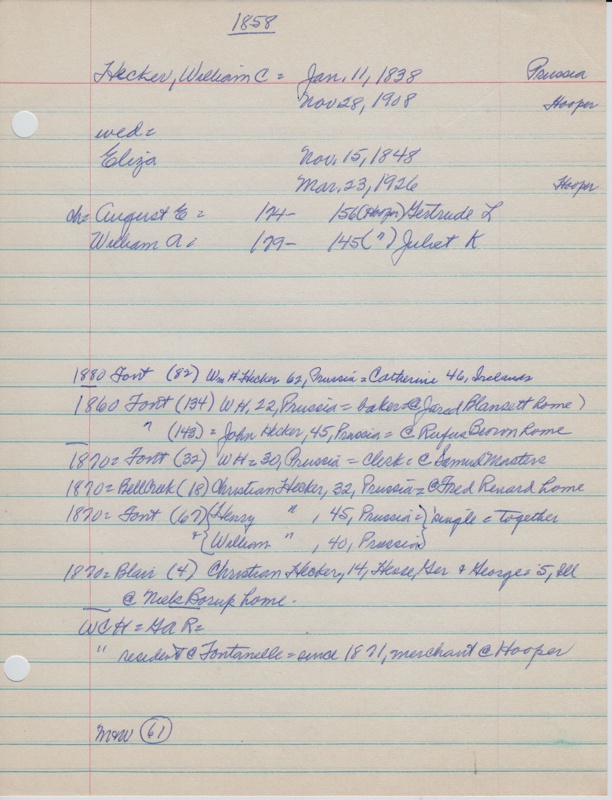 1858
Hecker, William C = Jan. 11, 1838 Prussia
Nov. 28, 1908 Hooper
wed =
Eliza Nov. 15, 1848
Mar. 23, 1926 Hooper
ch = August E = 174- 156 (Hooper) Gertrude L
William A = 179- 145 (") Juliet K
1880 Font (82) Wm H Hecker 62, Prussia = Catherine 46, Ireland
1860 Font (134) WH, 22, Prussia = baker = @ Jared Blansett home)
" (143) = John Hecker, 45, Prussia = @ Rufus Brown home
1870 = Font (32) WH = 30, Prussia = Clerk = @ Samuel Masters
1870 = Bell Creek (18) Christian Hecker, 32, Prussia = @ Fred Renard home
1870 = Font (67) { Henry " , 45, Prussia = } single = together
& { William " , 40, Prussia }
1870 = Blair (4) Christian Hecker, 14, Hesse, Ger & George = 5, Ill
@ Niels Borup home.
WCH = GAR =
" resident @ Fontanelle = since 1871, merchant @ Hooper
M&W (61)